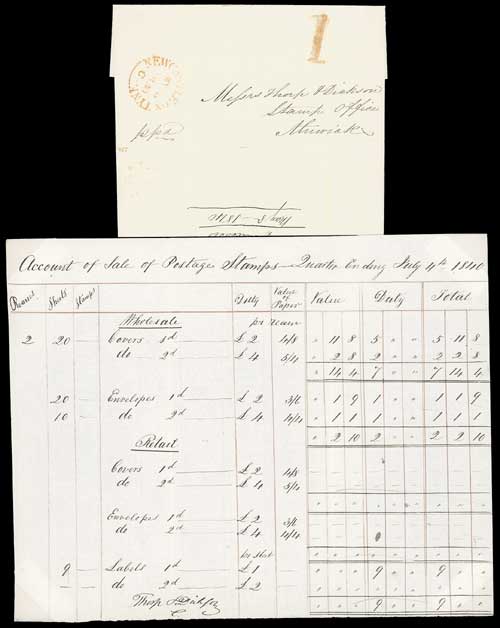 1
NEWCASTLE ON TYNE
Messrs Thorp & Dickson
Stamp Office
Alnwick
ppd
Account of Sale of Postage Stamps - Quarter Ending July 4th 1840
Reams Sheets Stamps Duty Value of Paper Value Duty Total
Wholesale per ream
2 20 — Covers 1d £2 4/8 " 11 8 5 " " 5 11 8
do 2d £4 5/4 " 2 8 2 " " 2 2 8
" 14 4 7 " " 7 14 4
20 — Envelopes 1d £2 3/6 " 1 9 1 " " 1 1 9
10 — do 2d £4 4/4 " 1 1 1 " " 1 1 1
" 2 10 2 " " 2 2 10
Retail
Covers 1d £2 4/8
do 2d £4 5/4
Envelopes 1d £2 3/6
do 2d £4 4/4
per sheet
9 — Labels 1d £1 " " " 9 " " 9 " "
— — do 2d £2
Thorp & Dickson " " " 9 " " 9 " "